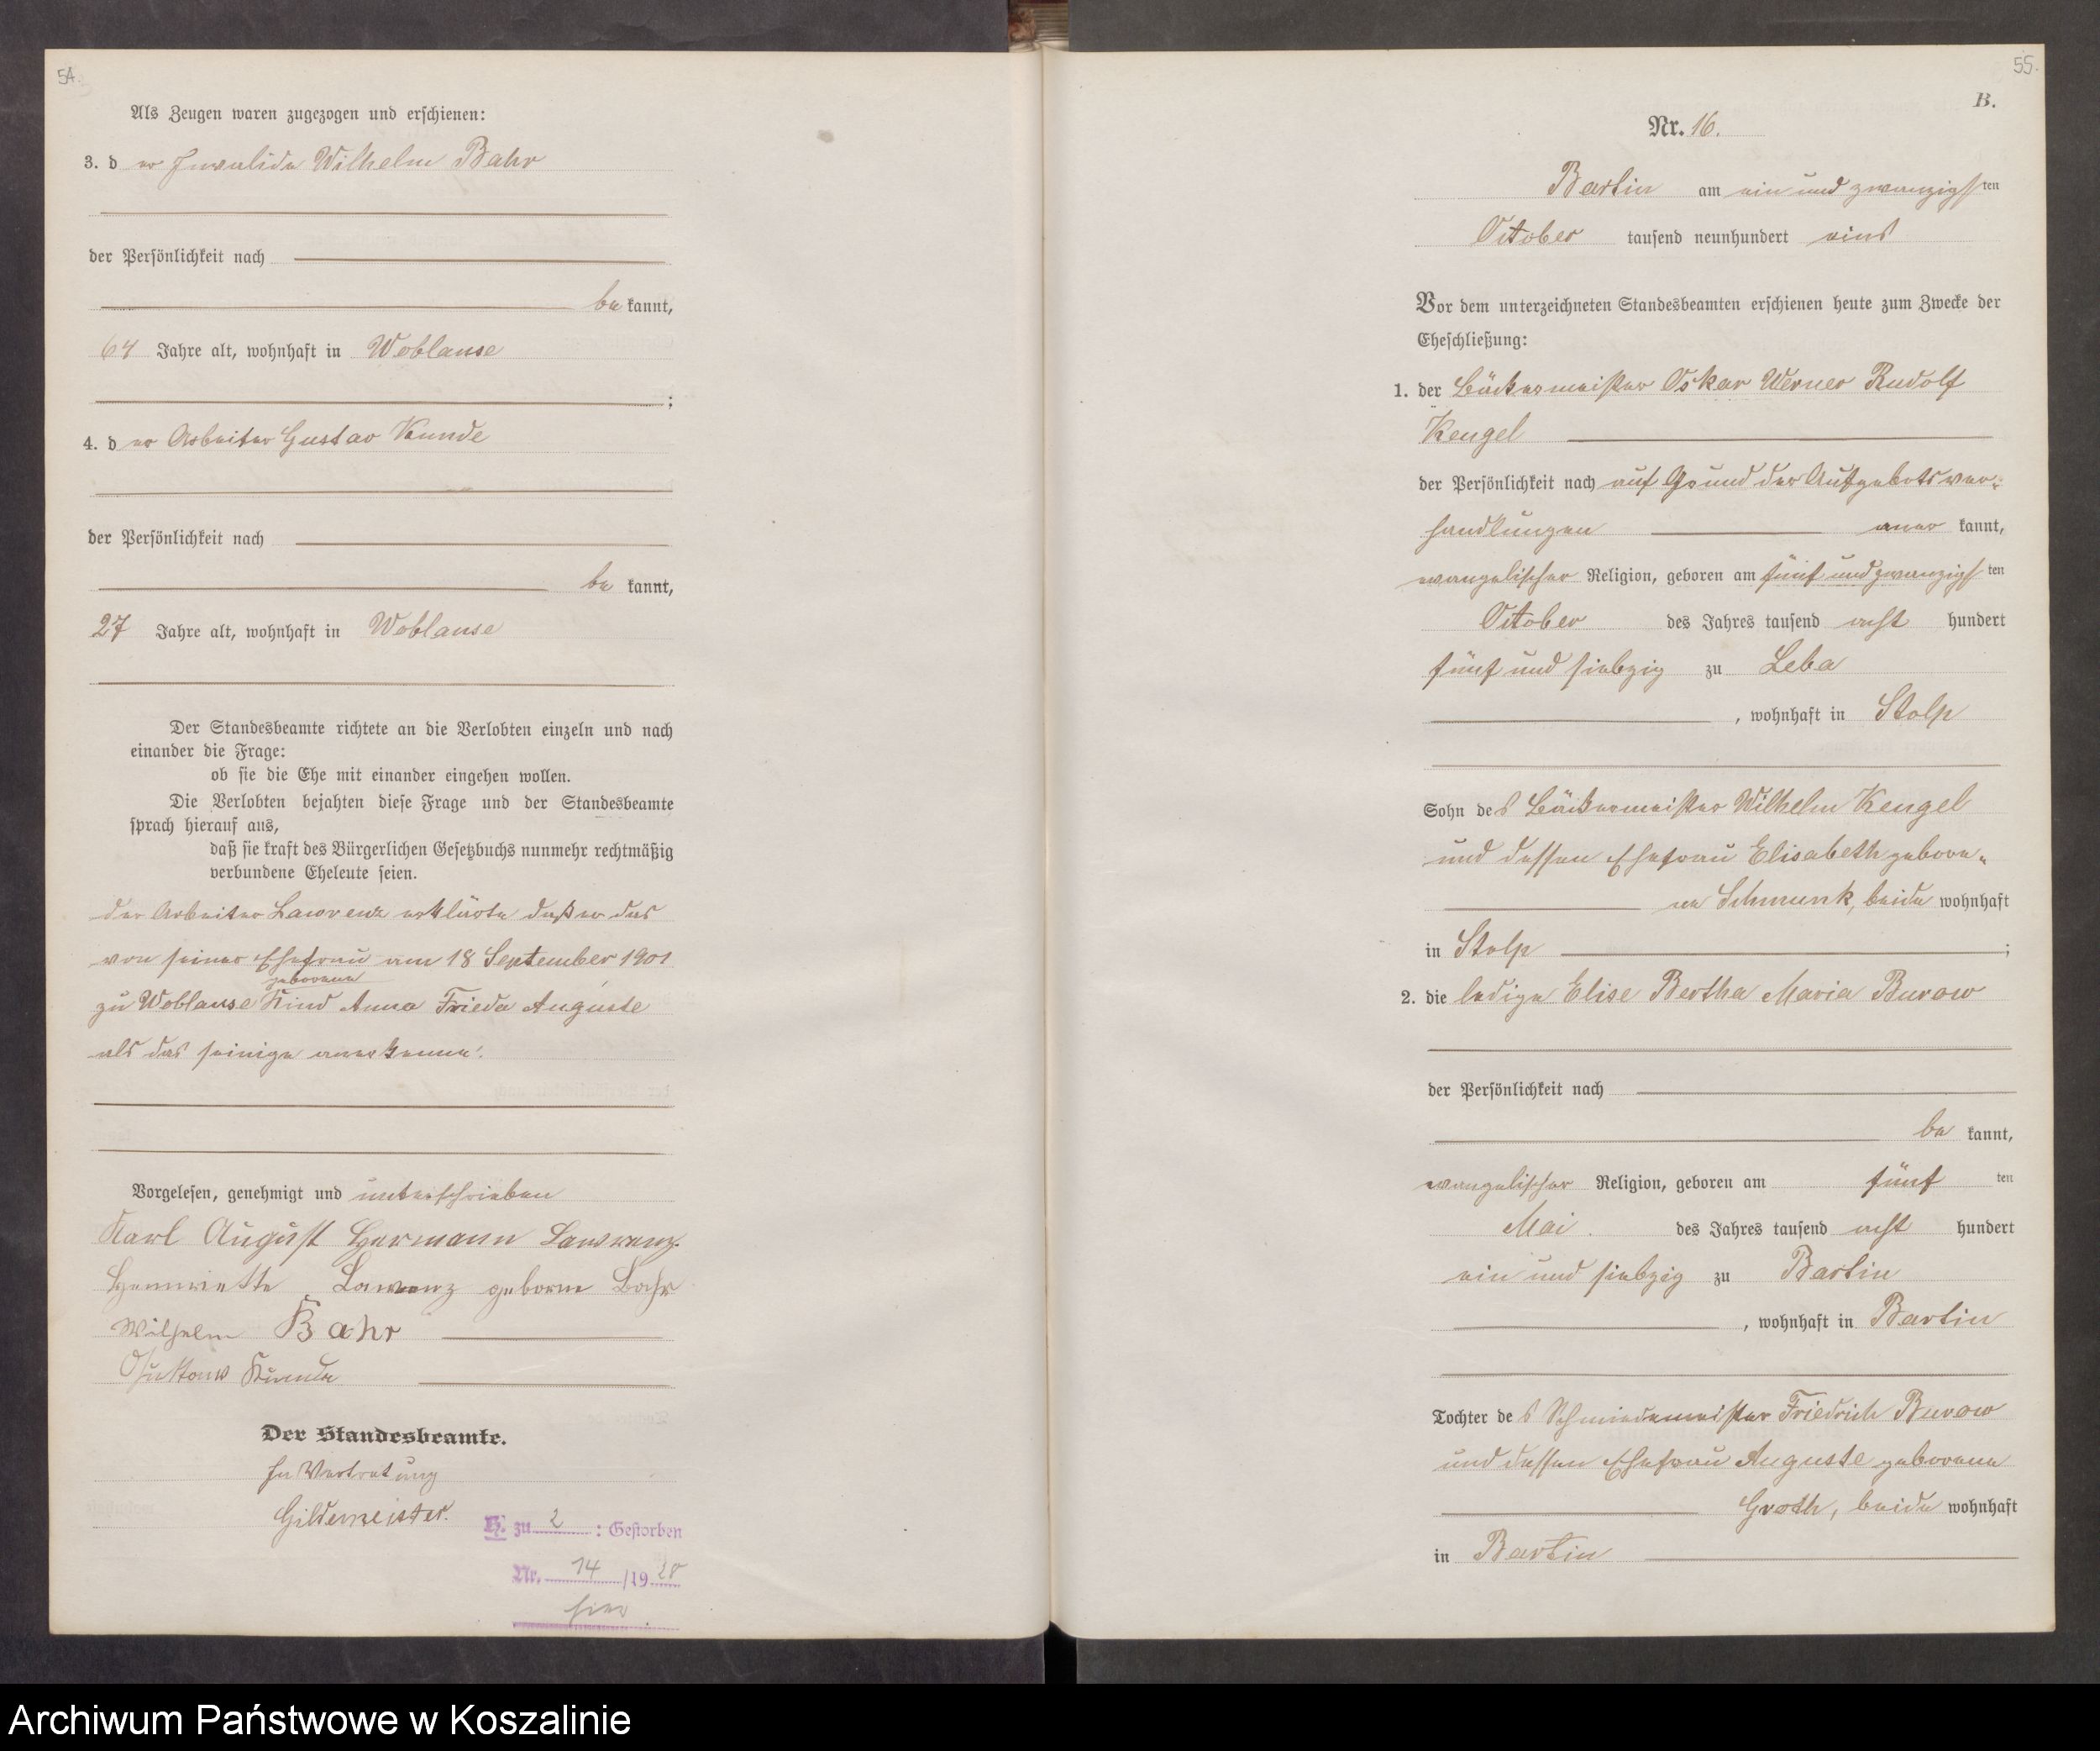 54.
Als Zeugen waren zugezogen und erschienen:
3. der Invalide Wilhelm Bahr
der Persönlichkeit nach
be kannt,
64 Jahre alt, wohnhaft in Woblanse
;
4. der Arbeiter Gustav Kunde
der Persönlichkeit nach
be kannt,
27 Jahre alt, wohnhaft in Woblanse
Der Standesbeamte richtete an die Verlobten einzeln und nach
einander die Frage:
ob sie die Ehe mit einander eingehen wollen.
Die Verlobten bejahten diese Frage und der Standesbeamte
sprach hierauf aus,
daß sie kraft des Bürgerlichen Gesetzbuchs nunmehr rechtmäßig
verbundene Eheleute seien.
der Arbeiter Lawrenz erklärte daß er das
von seiner Ehefrau am 18 September 1901
geborene
zu Woblanse Kind Anna Frieda Auguste
als das seinige anerkenne.
Vorgelesen, genehmigt und unterschrieben
Karl August Hermann Lawrenz.
Henriette Lawrenz geborne Bahr
Wilhelm Bahr
Gustav Kunde
Der Standesbeamte.
In Vertretung
Gildemeister.
H. zu 2 : Gestorben
Nr. 14 /19 20
hier
55.
B.
Nr. 16.
Bartin am ein und zwanzigsten
October tausend neunhundert eins
Vor dem unterzeichneten Standesbeamten erschienen heute zum Zwecke der
Eheschließung:
1. der Bäckermeister Oskar Werner Rudolf
Kengel
der Persönlichkeit nach auf Grund der Aufgebotsver-
handlungen aner kannt,
evangelischer Religion, geboren am fünf und zwanzigsten
October des Jahres tausend acht hundert
fünf und siebzig zu Leba
, wohnhaft in Stolp
Sohn des Bäckermeister Wilhelm Kengel
und dessen Ehefrau Elisabeth gebore-
ne Schmunk, beide wohnhaft
in Stolp ;
2. die ledige Elise Bertha Maria Burow
der Persönlichkeit nach
be kannt,
evangelischer Religion, geboren am fünf ten
Mai des Jahres tausend acht hundert
ein und siebzig zu Bartin
, wohnhaft in Bartin
Tochter des Schmiedemeister Friedrich Burow
und dessen Ehefrau Auguste geborene
Groth, beide wohnhaft
in Bartin
Archiwum Państwowe w Koszalinie